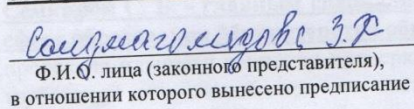 Саидмагомедова З.Х
Ф.И.О. лица (законного представителя),
в отношении которого вынесено предписание